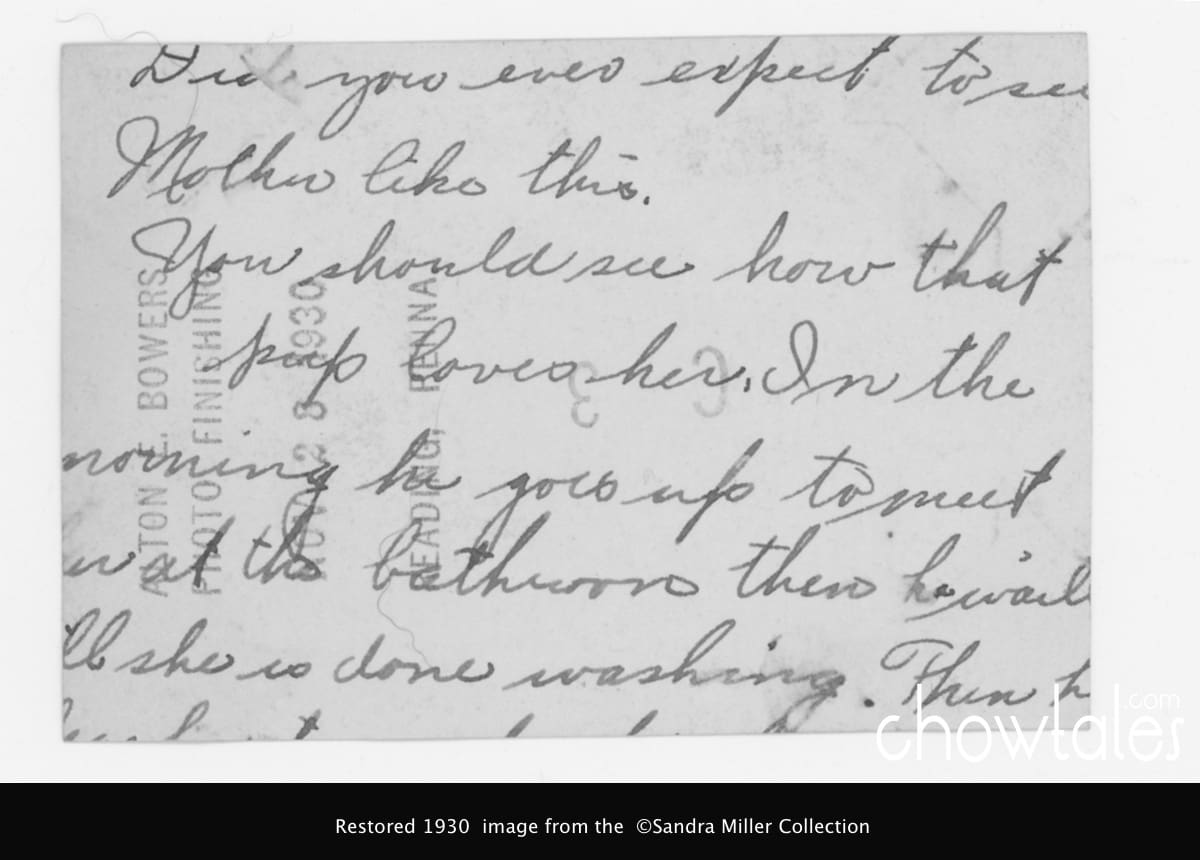 Did you ever expect to see
Mother like this.
You should see how that
pup loves her. In the
morning he goes up to meet
at the bathroom then he wait
ll she is done washing. Then h
ALTON E. BOWERS
PHOTO FINISHING
NOV 28 1930
READING, PENNA
.com
chowtales
Restored 1930 image from the ©Sandra Miller Collection